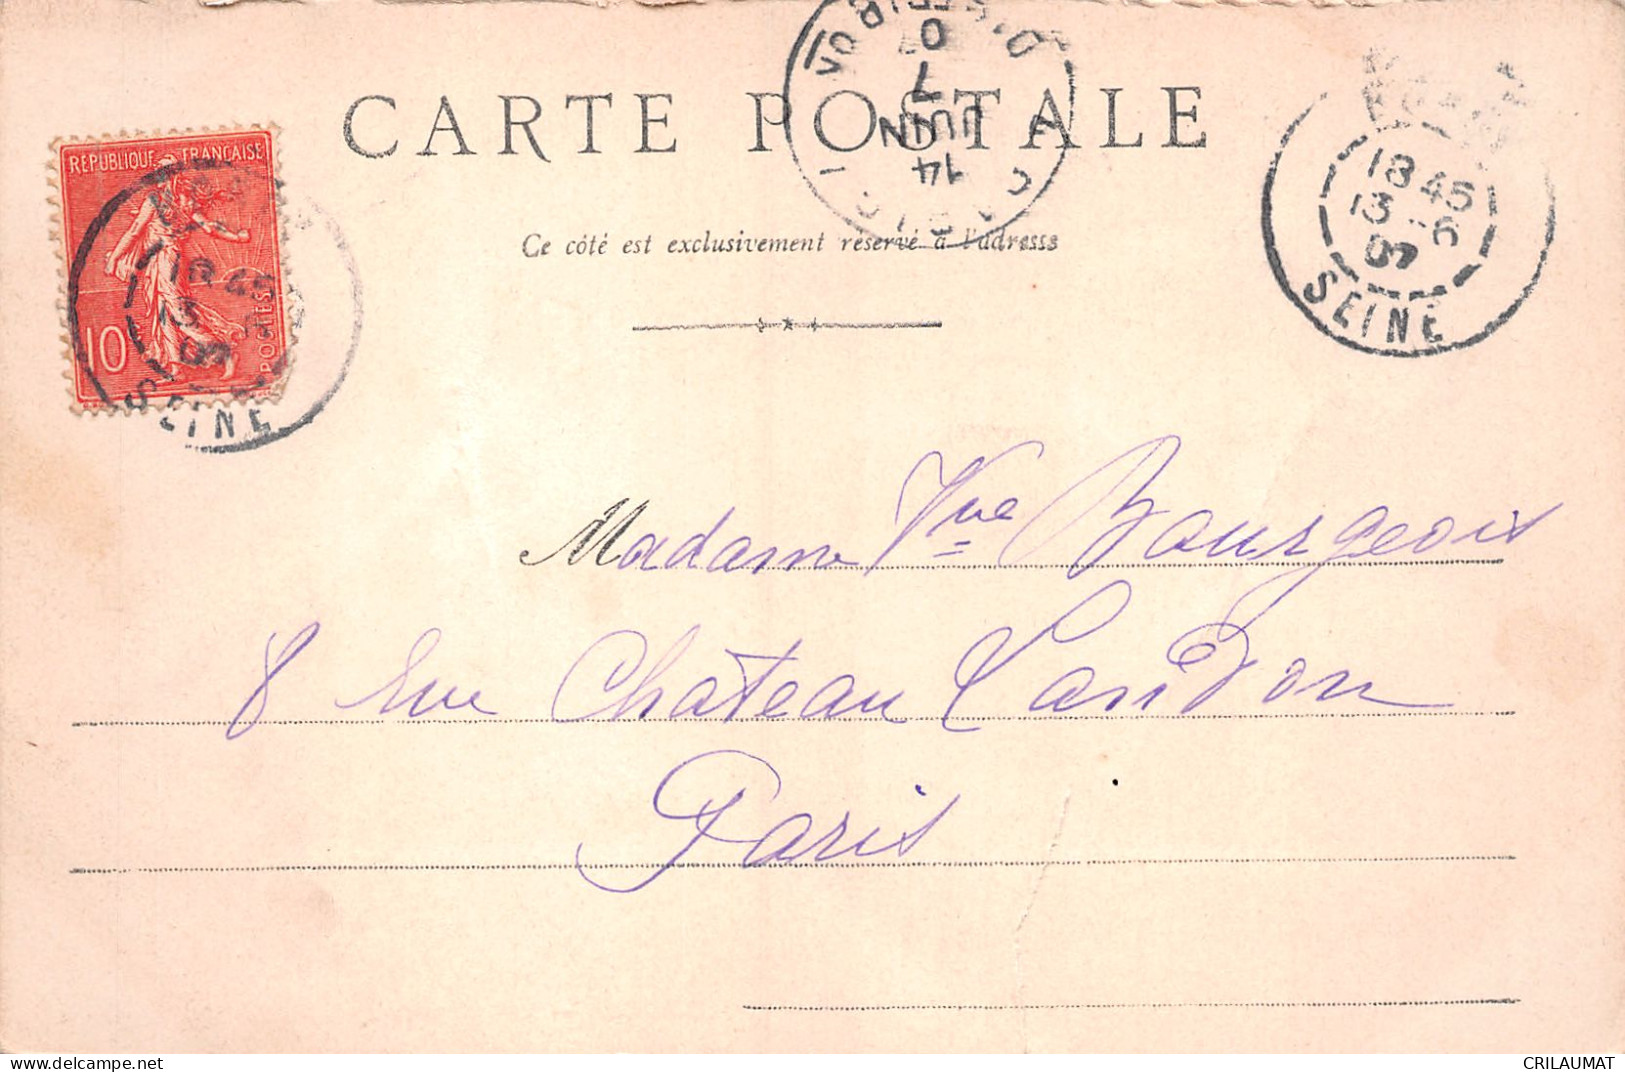 CARTE POSTALE
Ce côté est exclusivement réservé à l'adresse
RÉPUBLIQUE FRANÇAISE
10
POSTES
SEINE
14
JUIN
07
18 45
13 -6
07
SEINE
Madame Vve Bourgeois
8 rue Château Landon
Paris
CRILAUMAT